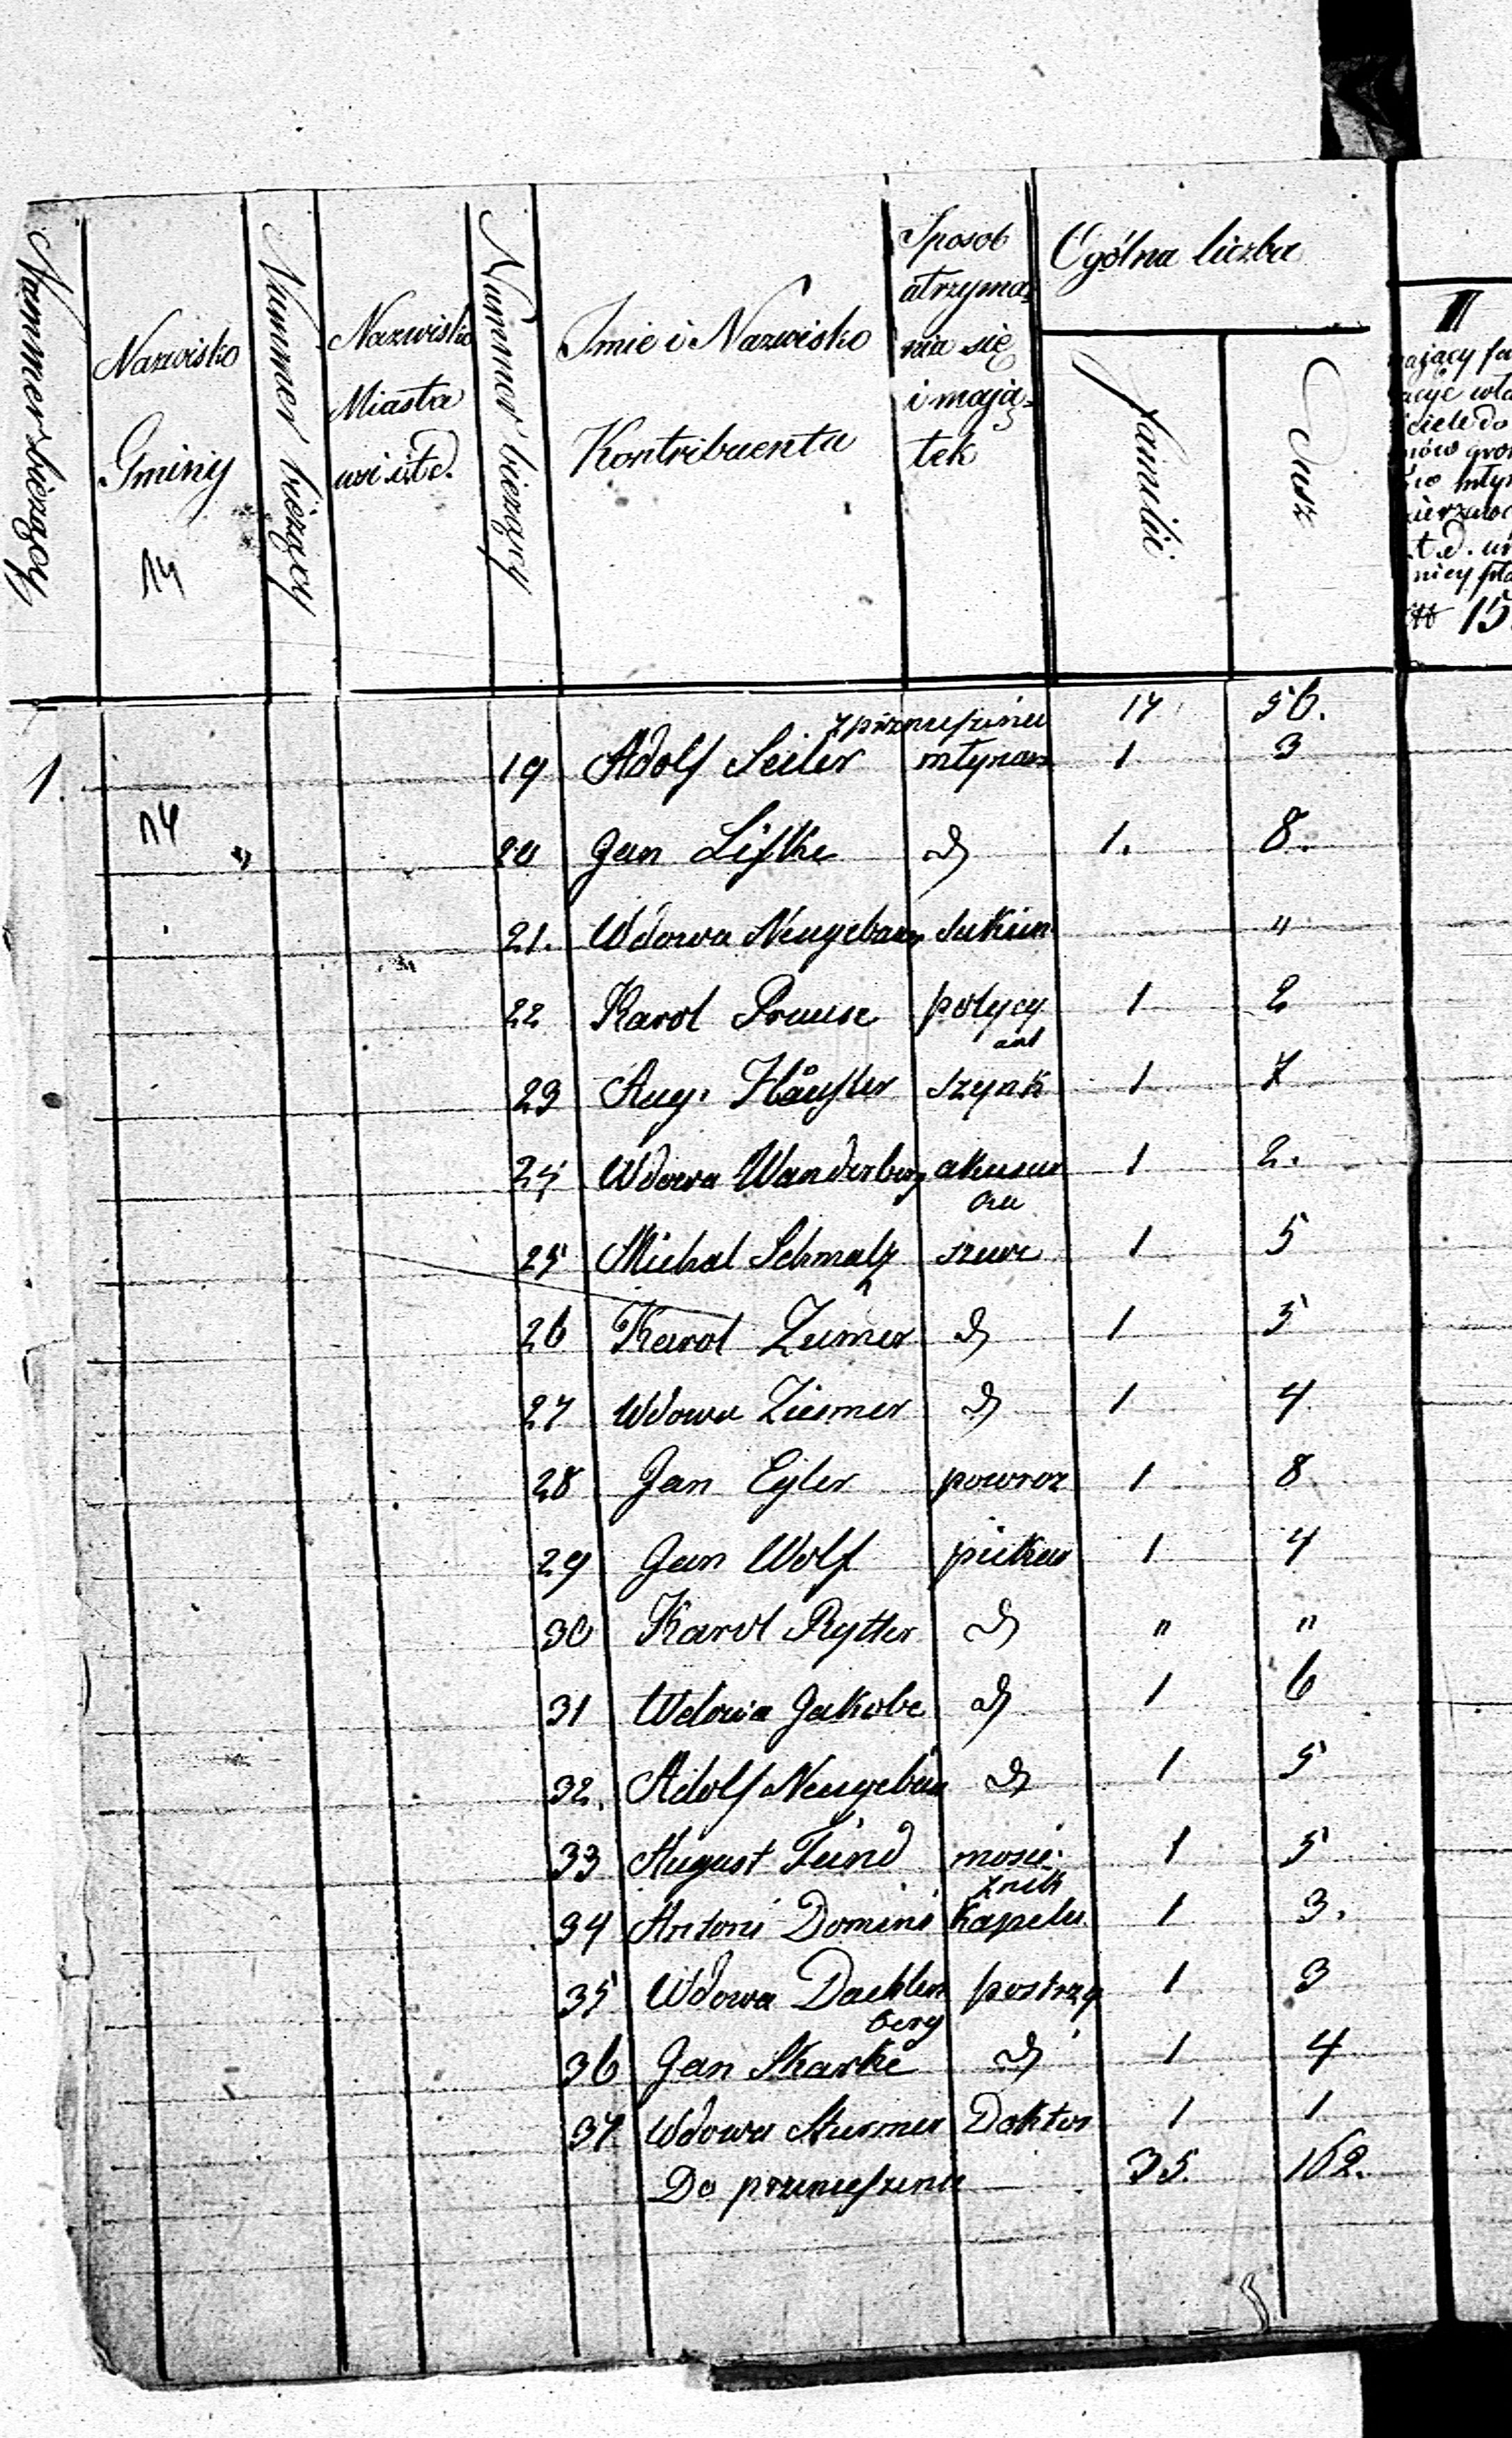 Nummer bieżący
Nazwisko Gminy
Nummer bieżący
Nazwisko Miasta wsi i t d.
Nummer bieżący
Imie i Nazwisko Kontribuenta
Sposob utrzyma= nia się i mają= tek
Ogólna liczba
familii
Dusz
III
14
z przeniesienia 17 56.
1. 19 Adolf Seiler młynarz 1 3
14 " 20 Jan Lisske d 1. 8.
21. Wdowa Neugebauer sukien "
22 Karol Prause polycyant 1 2
23 Aug. Häusler szynk 1 7
24 Wdowa Wanderberg akuszerka 1 2.
25 Michal Schmalz szewc 1 5
26 Karol Zumer d 1 5
27 Wdowa Ziemer d 1 4
28 Jan Eyler powroz 1 8
29 Jan Wolf piekar 1 4
30 Karol Rytter d " "
31 Wdowa Jakobe d 1 6
32. Adolf Neugebau d 1 5
33 August Feind mosiężnik 1 5
34 Antoni Domini kapelu 1 3.
35 Wdowa Dachlenberg postrzyg 1 3
36 Jan Skarke d 1 4
37 Wdowa Sturmer Doktor 1 1
Do przeniesienia 35. 162.
ający fa
ciele do
mów gro
t. d.
15